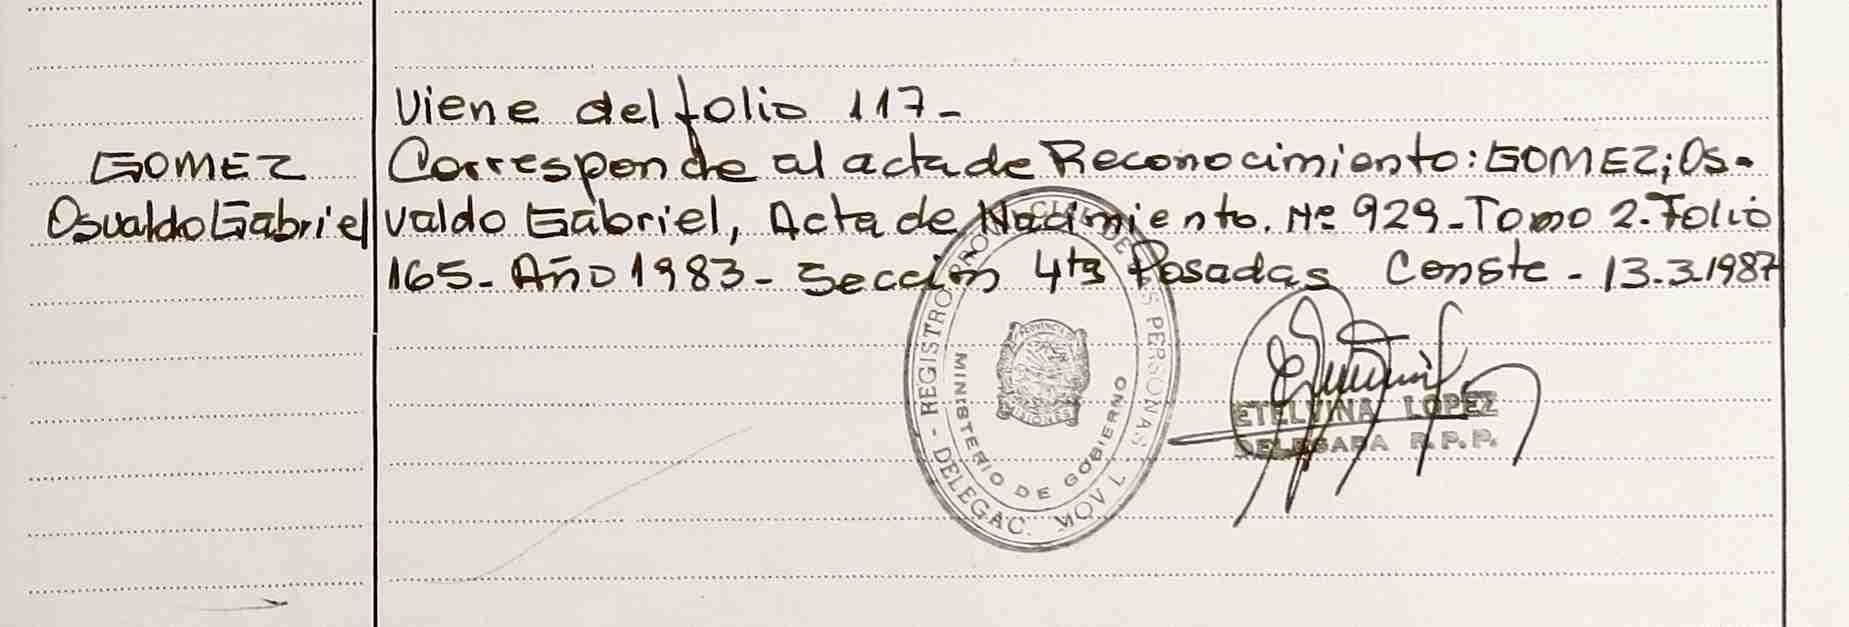 Viene del folio 117-
GOMEZ
Corresponde al acta de Reconocimiento: GOMEZ; Os-
Osvaldo Gabriel
valdo Gabriel, Acta de Nacimiento. Nº 929-Tomo 2-Folio
165- Año 1983- Sección 4ta Posadas Conste - 13.3.1987
REGISTRO PRO CIVIL DE LAS PERSONAS
MINISTERIO DE GOBIERNO
- DELEGAC. MOVIL
PROVINCIA
MISIONES
ETELVINA LOPEZ
DELEGADA R.P.P.